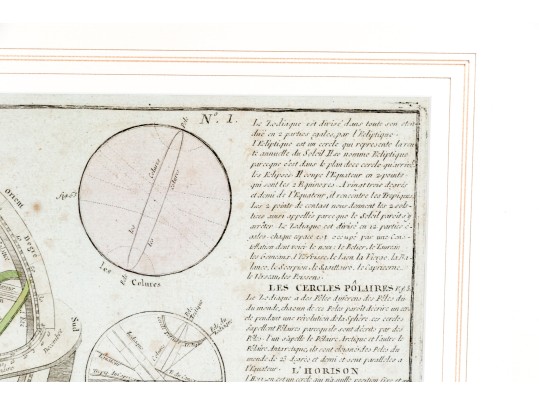 N.º 1.
Le Zodiaque est divisé dans toute son eten
duë en 2 parties égales, par l'Ecliptique.
l'Ecliptique est un cercle qui represente la rou
te annuelle du Soleil. Il se nomme Ecliptique
parceque c'est dans le plan de ce cercle qu'arrive
les Eclipses. Il coupe l'Equateur en 2 points
qui sont les 2 Equinoxes. A vingt trois degrés
et demi de l'Equateur, il rencontre les Tropiques
Les 2 points de contact nous donnent les 2 sols-
tices ainsi appellés parceque le Soleil paroit s'y
arrêter. Le Zodiaque est divisé en 12 parties é-
gales chaque espace est occupé par une Cons-
tellation dont voici le nom: le Belier, le Taureau
les Gemeaux, l'Ecrevisse, le Lion la Vierge la Ba-
lance, le Scorpion, le Sagittaire, le Capricorne,
le Verseau, les Poissons.
LES CERCLES PÔLAIRES Fig. 5
Le Zodiaque a des Pôles diferens des Pôles du
du monde, chacun de ces Pôles paroît décrire un cer
cle pendant une révolution de la Sphère ces cercles
s'apellent Pôlaires parcequ'ils sont décrits par des
Pôles. l'un s'apelle le Pôlaire Arctique et l'autre le
Pôlaire Antarctique, ils sont éloignés des Pôles du
monde de 23 degrés et demi et sont paralleles a
l'Equateur.
L'HORISON
l'Horison est un cercle qui n'a nulle position fixe et
Colure
Colures
Les
Colures
Orient
Degré
Sud